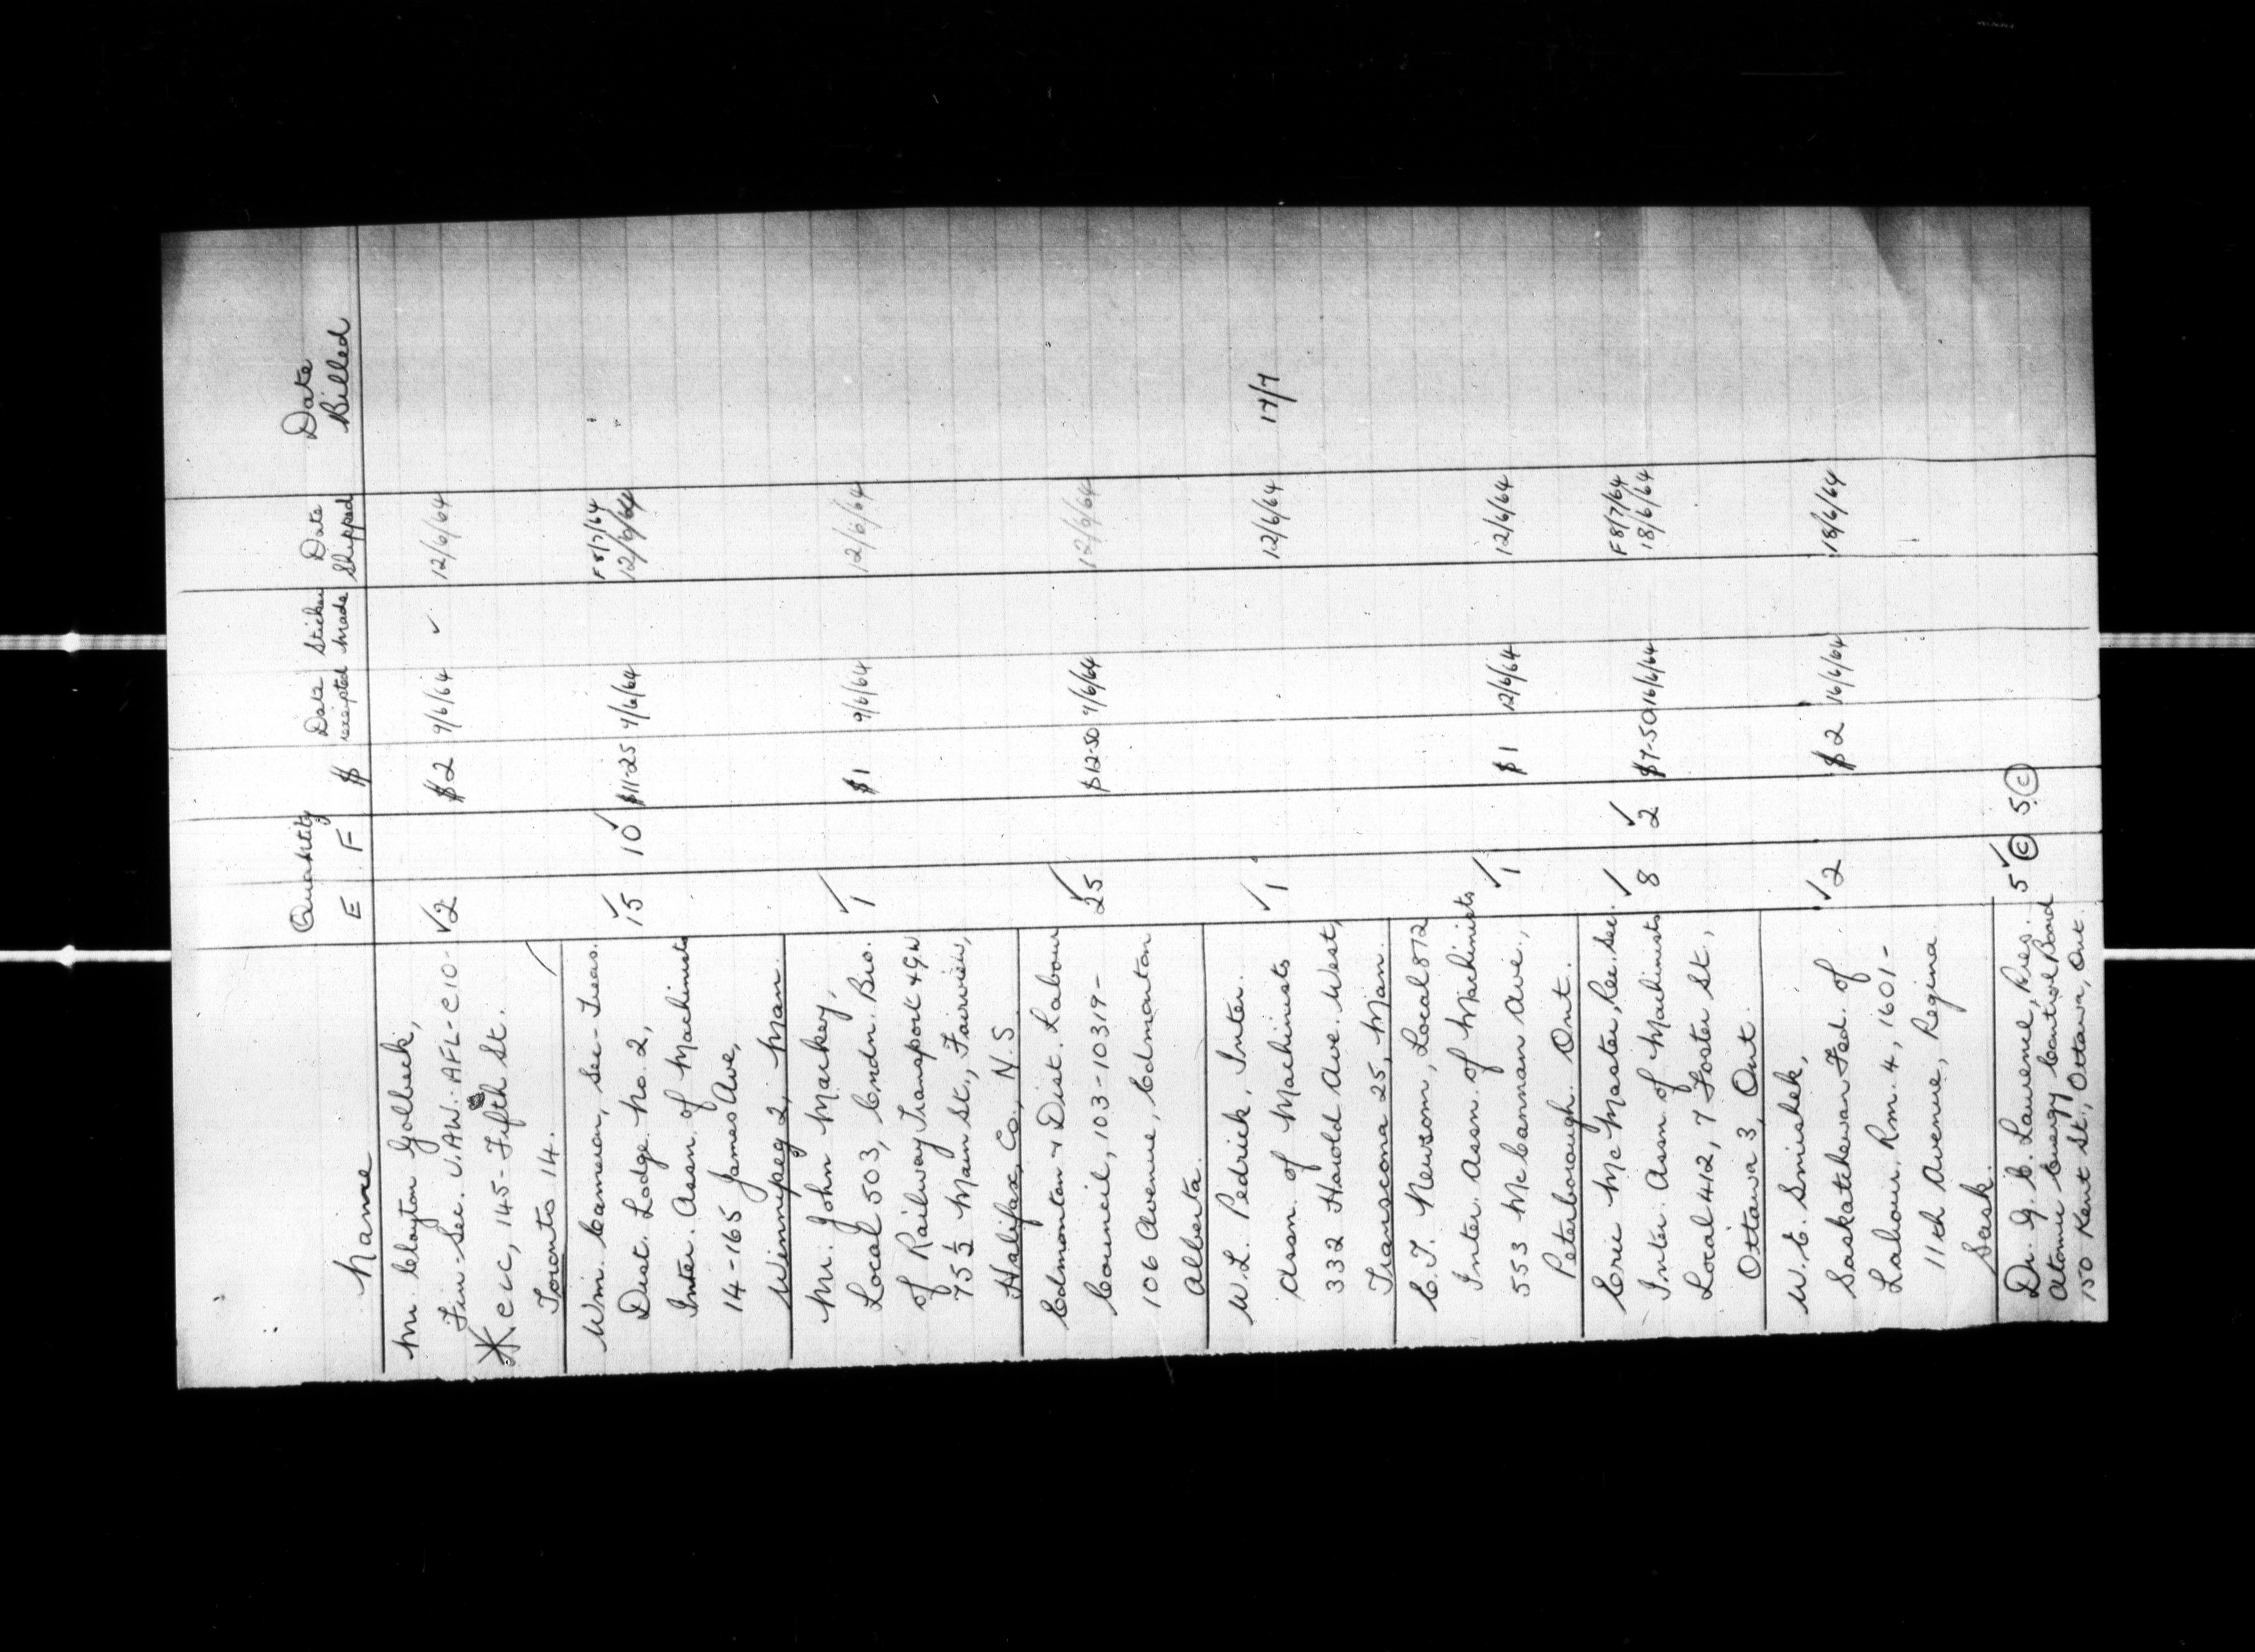 Name Quantity Date Sticker Date Date
E F $ receipted Made Shipped Billed
Mr. Clayton Golbeck,
Fin-Sec. U.AW.-AFL-CIO- ✓2 $2 9/6/64 ✓ 12/6/64
* CLC, 145-Fifth St.
Toronto 14.
Wm. Cameron, Sec-Treas. F 8/7/64
Dist. Lodge No. 2, ✓15 10✓ $11-25 9/6/64 12/6/64
Inter. Assn. of Machinists
14-165 James Ave,
Winnipeg 2, Man.
Mr. John Markey,
Local 503, Cndn. Bro. ✓1 $1 9/6/64 12/6/64
of Railway Transport & G.W
75 1/2 Main St., Fairview,
Halifax, Co., N.S.
Edmonton & Dist. Labour
Council, 103-10319- ✓25 $12-50 9/6/64 12/6/64
106 Avenue, Edmonton
Alberta.
W.L. Pedrick, Inter.
Assn. of Machinists ✓1 12/6/64 17/7
332 Harold Ave. West,
Transcona 25, Man.
E.T. Newsom, Local 872
Inter. Assn. of Machinists ✓1 $1 12/6/64 12/6/64
553 McCannan Ave.,
Peterborough. Ont.
Eric McMaster, Rec. Sec. F 8/7/64
Inter. Assn. of Machinists ✓8 ✓2 $7-50 16/6/64 18/6/64
Local 412, 7 Foster St.,
Ottawa 3, Ont.
W.E. Smishek,
Saskatchewan Fed. of ✓2 $2 16/6/64 18/6/64
Labour. Rm. 4, 1601-
11th Avenue, Regina
Sask.
Dr. G.C. Laurence, Pres. 5✓ © 5 ©
Atomic Energy Control Board
150 Kent St., Ottawa, Ont.